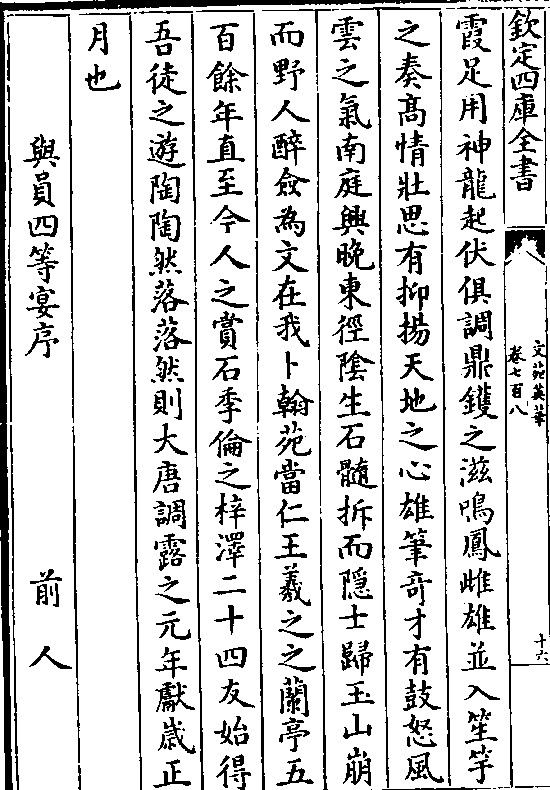 欽定四庫全書
文苑英華
卷七百八
十六
霞足用神龍起伏俱調鼎鑊之滋鳴鳳雌雄並入笙竽
之奏高情壯思有抑揚天地之心雄筆奇才有鼓怒風
雲之氣南庭興晚東徑陰生石髓拆而隱士歸玉山崩
而野人醉僉為文在我卜翰苑當仁王羲之之蘭亭五
百餘年直至今人之賞石季倫之梓澤二十四友始得
吾徒之遊陶陶然落落然則大唐調露之元年獻歲正
月也
與員四等宴序
前人